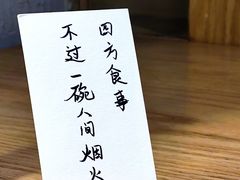 四方食事
不过一碗人间烟火